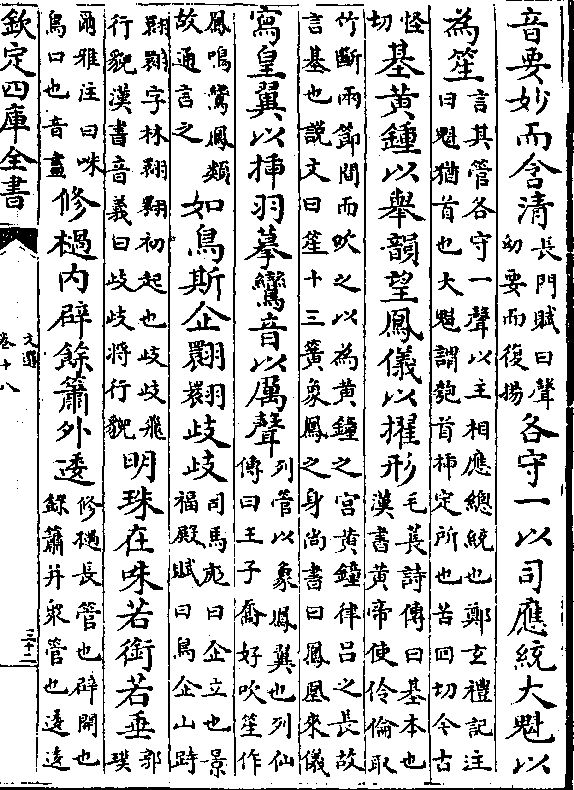 音要妙而含清長門賦曰聲幼要而復揚各守一以司應統大魁以
為笙言其管各守一聲以主相應總統也鄭玄禮記注曰魁猶首也大魁謂匏首揷定所也苦回切今古
怪切基黄鍾以舉韻望鳳儀以擢形毛萇詩傳曰基本也漢書黄帝使伶倫取
竹斷兩節間而吹之以為黄鐘之宮黄鐘律吕之長故言基也説文曰笙十三簧象鳳之身尚書曰鳳凰來儀
寫皇翼以揷羽摹鸞音以厲聲列管以象鳳翼也列仙傳曰王子喬好吹笙作
鳳鳴鸞鳳類故通言之如鳥斯企翾翾歧歧司馬彪曰企立也景福殿賦曰鳥企山跱
翾翾字林翾翾初起也歧歧飛行貌漢書音義曰歧歧將行貌明珠在咮若銜若垂郭璞
爾雅注曰咮鳥口也音晝修檛内辟餘簫外逶修檛長管也辟開也餘簫并衆管也逶逶
欽定四庫全書
文選
卷十八
三十二